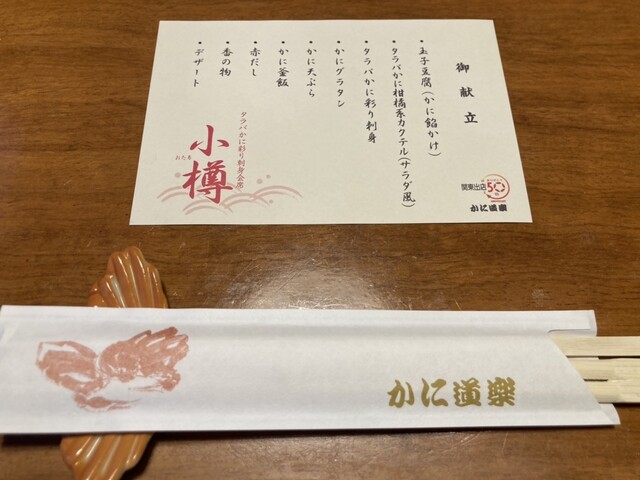 御献立
・玉子豆腐(かに餡かけ)
・タラバかに柑橘系カクテル(サラダ風)
・タラバかに彩り刺身
・かにグラタン
・かに天ぷら
・かに釜飯
・赤だし
・香の物
・デザート
タラバかに彩り刺身会席
小樽
おたる
関東出店
50
かに道楽
かに道楽